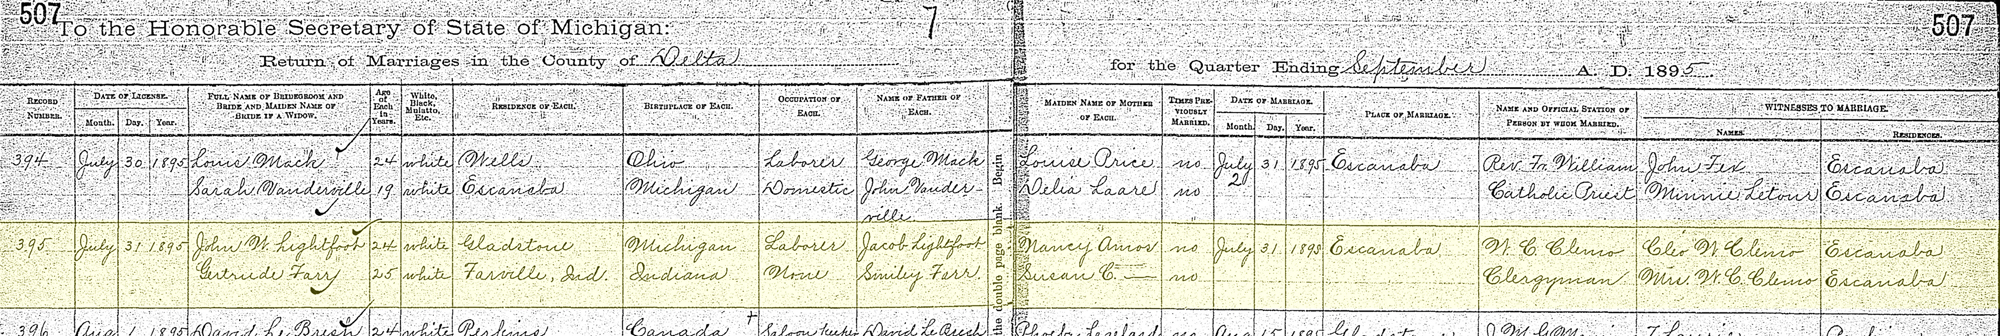 507
To the Honorable Secretary of State of Michigan:
7
507
Return of Marriages in the County of Delta
for the Quarter Ending September A. D. 1895.
RECORD NUMBER.
DATE OF LICENSE.
Month. Day. Year.
FULL NAME OF BRIDEGROOM AND BRIDE AND MAIDEN NAME OF BRIDE IF A WIDOW.
Age of Each in Years.
White, Black, Mulatto, Etc.
RESIDENCE OF EACH.
BIRTHPLACE OF EACH.
OCCUPATION OF EACH.
NAME OF FATHER OF EACH.
MAIDEN NAME OF MOTHER OF EACH.
TIMES PREVIOUSLY MARRIED.
DATE OF MARRIAGE.
Month. Day. Year.
PLACE OF MARRIAGE.
NAME AND OFFICIAL STATION OF PERSON BY WHOM MARRIED.
WITNESSES TO MARRIAGE.
NAMES. RESIDENCES.
394 July 30 1895 Louis Mack 24 white Wells Ohio Laborer George Mack Louise Price no July 31 1895 Escanaba Rev. Fr. William John Fex Escanaba
Sarah Vanderville 19 white Escanaba Michigan Domestic John Vander- Delia Laare no 2 Catholic Priest Minnie Letour Escanaba
ville.
395 July 31 1895 John W. Lightfoot 24 white Gladstone Michigan Laborer Jacob Lightfoot Nancy Amos no July 31 1895 Escanaba W. C. Clemo Cleo W. Clemo Escanaba
Gertrude Farr 25 white Farville, Ind. Indiana None Smiley Farr. Susan C. — no Clergyman Mrs. W. C. Clemo Escanaba
396 Aug 1 1895 David Le Bresh 24 white Perkins Canada Saloon Keeper David Le Bresh
the double page blank. Begin